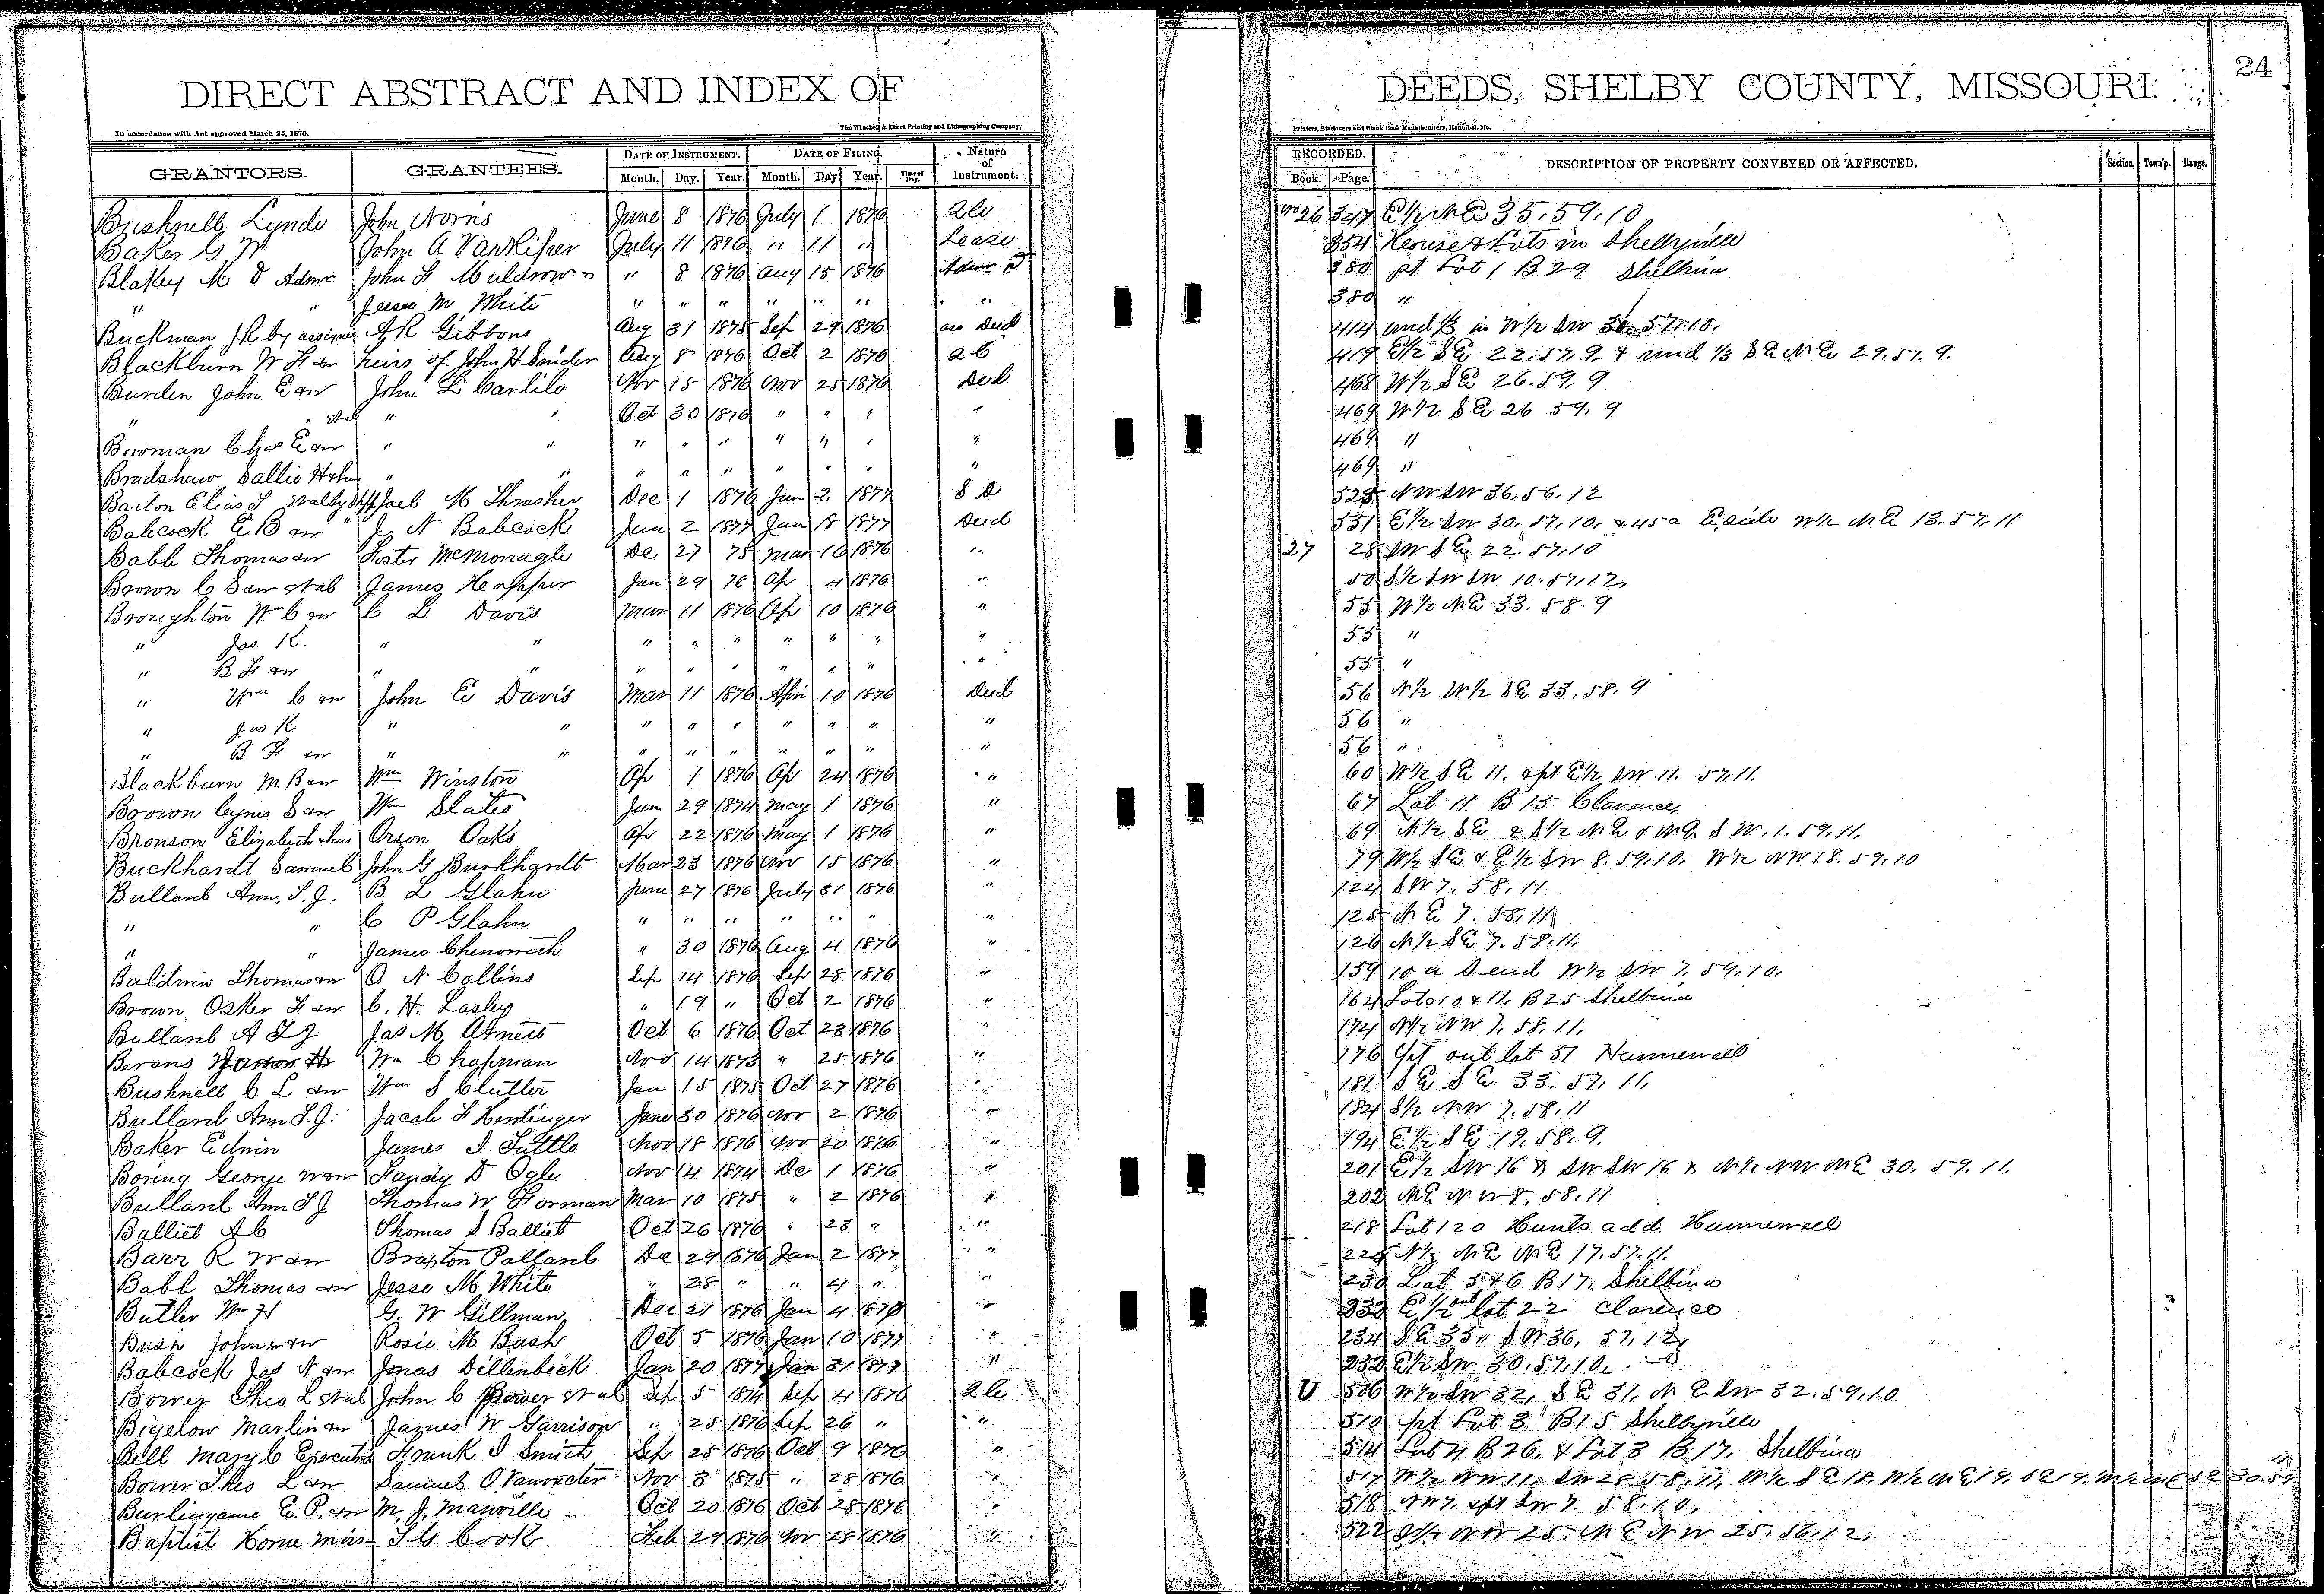 24
DIRECT ABSTRACT AND INDEX OF DEEDS, SHELBY COUNTY, MISSOURI.
In accordance with Act approved March 23, 1870. The Winchell & Ebert Printing and Lithographing Company, Printers, Stationers and Blank Book Manufacturers, Hannibal, Mo.
GRANTORS. GRANTEES. DATE OF INSTRUMENT. DATE OF FILING. Nature of Instrument. RECORDED. DESCRIPTION OF PROPERTY CONVEYED OR AFFECTED. Section. Town'p. Range.
Month. Day. Year. Month. Day. Year. Time of Day. Book. Page.
Bushnell Lynde John Norris June 8 1876 July 1 1876 26 347 35.59.10
Baker G W John A VanRiper July 11 1876 " 11 " Lease 354 House & Lots in Shelbyville
Blakey M D Admr John F Muldrow " 8 1876 Aug 15 1876 Admr D 380 pt Lot 1 B 29 Shelbina
" " Jesse M White " " " " " " " 380 "
Buckman J R by assignee A R Gibbons Aug 31 1875 Sep 29 1876 Deed 414 und 1/3 in W1/2 SW 57.10.
Blackburn W F & w heirs of John H Snider Aug 8 1876 Oct 2 1876 419 E1/2 SE 22.57.9. & und 1/3 SE NE 29.57.9.
Burden John E & w John L Carlile Nov 15 1876 Nov 25 1876 Deed 468 W1/2 SE 26.59.9
" " " " Oct 30 1876 " " " " 469 W1/2 SE 26 59.9
Bowman Chas E & w " " " " " " " " " 469 "
Bradshaw Sallie H " " " " " " " " " 469 "
Barton Elias Joel M Thrasher Dec 1 1876 Jan 2 1877 S D 525 NW SW 36.56.12
Babcock E B & w J N Babcock Jan 2 1877 Jan 18 1877 Deed 551 E1/2 SW 30.57.10. & 45a E side W1/2 NE 13.57.11
Babb Thomas & w Foster McMonagle De 27 75 Mar 16 1876 " 27 28 SW SE 22.57.10
Brown C S & w James Hopper Jan 29 76 Ap 4 1876 " 50 S1/2 SW SW 10.57.12.
Broughton Wm C & w C L Davis Mar 11 1876 Ap 10 1876 " 55 W1/2 NE 33.58.9
" Jas K. " " " " " " " " " 55 "
" B F & w " " " " " " " " " 55 "
" Wm C & w John E Davis Mar 11 1876 Apr 10 1876 Deed 56 N1/2 W1/2 SE 33.58.9
" Jas K " " " " " " " " " 56 "
" B F & w " " " " " " " " " 56 "
Blackburn M B & w Wm Winston Ap 1 1876 Ap 24 1876 " 60 W1/2 SE 11. & pt E1/2 SW 11. 57.11.
Brown Cyrus S & w Wm Slates Jan 29 1874 May 1 1876 " 67 Lot 11 B 15 Clarence
Bronson Elizabeth & hus Orson Oaks Ap 22 1876 May 1 1876 " 69 N1/2 SE & S1/2 NE & NE S W. 1.59.11.
Buckhardt Samuel John G Burkhardt Mar 23 1876 Nov 15 1876 " 79 W1/2 SE & E1/2 SW 8.59.10. W1/2 NW 18.59.10
Bullard Ann. T. J. B L Glahn June 27 1876 July 31 1876 " 124 SW 7. 58.11
" " C P Glahn " " " " " " " 125 NE 7. 58.11
" " James Chenoweth " 30 1876 Aug 4 1876 " 126 N1/2 SE 7. 58.11.
Baldwin Thomas & w O N Collins Sep 14 1876 Sep 28 1876 " 159 10 a S end W1/2 SW 7. 59.10.
Brown Osker F & w C. H. Lasley " 19 " Oct 2 1876 " 164 Lots 10 & 11. B 25 Shelbina
Bullard A T J Jas M Arnett Oct 6 1876 Oct 23 1876 " 174 N1/2 NW 7. 58.11.
Bevans James H Wm Chapman Nov 14 1873 " 25 1876 " 176 pt out lot 51 Hunnewell
Bushnell C L & w Wm S Clutter Jan 15 1875 Oct 27 1876 " 181 SE SE 33.57.11.
Bullard Ann T. J. Jacob F Hentinger June 30 1876 Nov 2 1876 " 184 S1/2 NW 7.58.11
Baker Edwin James I Tuttle Nov 18 1876 Nov 20 1876 " 194 E1/2 SE 19.58.9.
Boring George W & w Handy D Ogle Nov 14 1874 De 1 1876 " 201 E1/2 SW 16 & SW SW 16 & N1/2 NW NE 30. 59.11.
Bullard Ann T J Thomas W Forman Mar 10 1875 " 2 1876 " 202 NE NW 8.58.11
Balliet A C Thomas S Balliet Oct 26 1876 " 23 " " 218 Lot 120 Hunts add. Hunnewell
Barr R W & w Braxton Pollard De 29 1876 Jan 2 1877 " N1/2 NE NE 17.57.11.
Babb Thomas & w Jesse M White " 28 " " 4 " " 230 Lot 5 & 6 B 17. Shelbina
Butler Wm H G. W Gillman Dec 21 1876 Jan 4 " E1/2 out lot 22 Clarence
Bush John & w Rosie M Bush Oct 5 1876 Jan 10 1877 " 234 SE 35. SW 36. 57.12.
Babcock Jas N & w Jonas Dillenbeck Jan 20 1877 Jan 31 1877 " E1/2 SW 30.57.10.
Bower Theo L John C Bower Sep 5 1874 Sep 4 1876 U 506 W1/2 SW 32, SE 31, NE SW 32.59.10
Bigelow Marlin & w James W Garrison " 25 1876 Sep 26 " " 510 pt Lot 3 B 15 Shelbyville
Bell Mary C Executrix Frank I Smith Sep 25 1876 Oct 9 1876 " 514 Lot 4 B 26. & Lot 3 B 17. Shelbina
Bower Theo L & w Samuel O Vanvacter Nov 3 1875 " 28 1876 " 517 W1/2 NW 11. SW 25 58.11.
Burlingame E. P. & w M. J. Manville Oct 20 1876 Oct 28 1876 " 518 NW 7. & pt SW 7. 58.10.
Baptist Home Miss T G Cook Feb 29 1876 Nov 28 1876 " 522 NW 25. NE NW 25. 56.12.